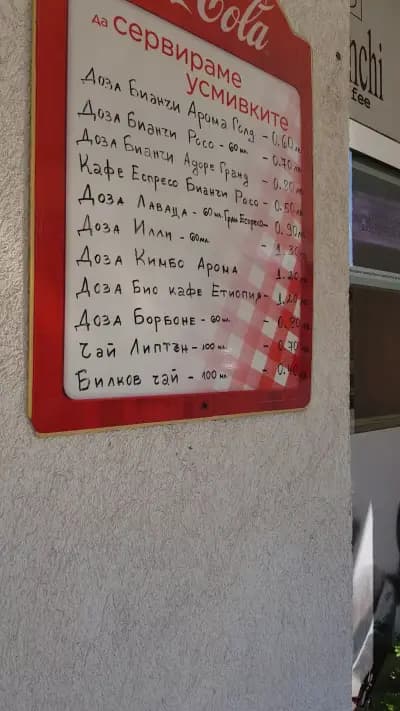 Cola
да сервираме
усмивките
Доза Бианчи Арома Голд - 0.60 лв
Доза Бианчи Росо - 60 мл. - 0.70 лв
Доза Бианчи Адоре Гранд - 0.80 лв
Кафе Еспресо Бианчи Росо - 0.50 лв
Доза Лаваца - 60 мл. Гран Еспресо - 0.90 лв
Доза Илли - 60 мл. - 1.30
Доза Кимбо Арома 1.20
Доза Био кафе Етиопия - 1.20
Доза Борбоне - 60 мл. - 0.90
Чай Липтън - 100 мл. - 0.70
Билков чай - 100 мл. - 0.40
nchi
fee